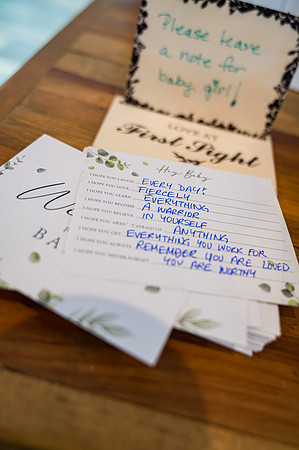 Please leave
a note for
baby girl!
LOVE AT
First Sight
Hey Baby
I HOPE YOU LAUGH EVERY DAY!
I HOPE YOU LOVE FIERCELY
I HOPE YOU LEARN EVERYTHING
I HOPE YOU BECOME A WARRIOR
I HOPE YOU BELIEVE IN YOURSELF
I HOPE YOU AREN'T AFRAID OF ANYTHING
I HOPE YOU GET EVERYTHING YOU WORK FOR
I HOPE YOU ALWAYS REMEMBER YOU ARE LOVED
I HOPE YOU NEVER FORGET YOU ARE WORTHY
BA